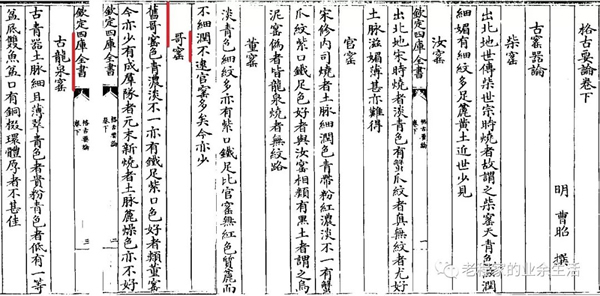 格古要論卷下
明 曹昭 撰
古窰器論
柴窰
出北地世傳柴世宗時燒者故謂之柴窰天青色滋潤
細媚有細紋多足麄黄土近世少見
汝窰
欽定四庫全書
卷下
一
出北地宋時燒者淡青色有蟹爪紋者真無紋者尤好
土脉滋媚薄甚亦難得
官窰
宋修内司燒者土脉細潤色青帶粉紅濃淡不一有蟹
爪紋紫口鐵足色好者與汝窰相類有黒土者謂之烏
泥窰偽者皆龍泉燒者無紋路
董窰
淡青色細紋多亦有紫口鐵足比官窰無紅色質麄而
不細潤不逮官窰多矣今亦少
哥窰
舊哥窰色青濃淡不一亦有鐵足紫口色好者類董窰
今亦少有成羣隊者元末新燒者土脉麄燥色亦不好
欽定四庫全書
卷下
三
欽定四庫全書
格古要論
卷下
三
古龍泉窰
古青器土脉細且薄翠青色者貴粉青色者低有一等
盆底雙魚盆口有銅掇環體厚者不甚佳
老薛家的业余生活